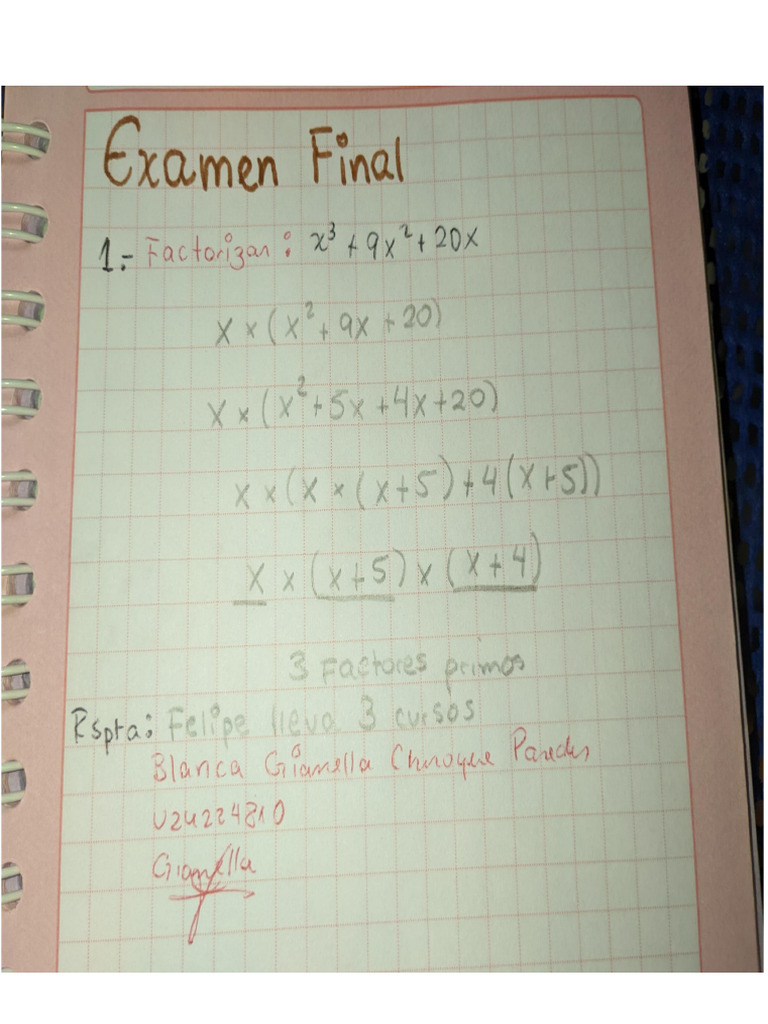 Examen Final
1.- Factorizar: x³ + 9x² + 20x
x × (x² + 9x + 20)
x × (x² + 5x + 4x + 20)
x × (x × (x + 5) + 4 (x + 5))
x × (x + 5) × (x + 4)
3 Factores primos
Rspta: Felipe lleva 3 cursos
Blanca Gianella Chiroque Paredes
U24224810
Gianella